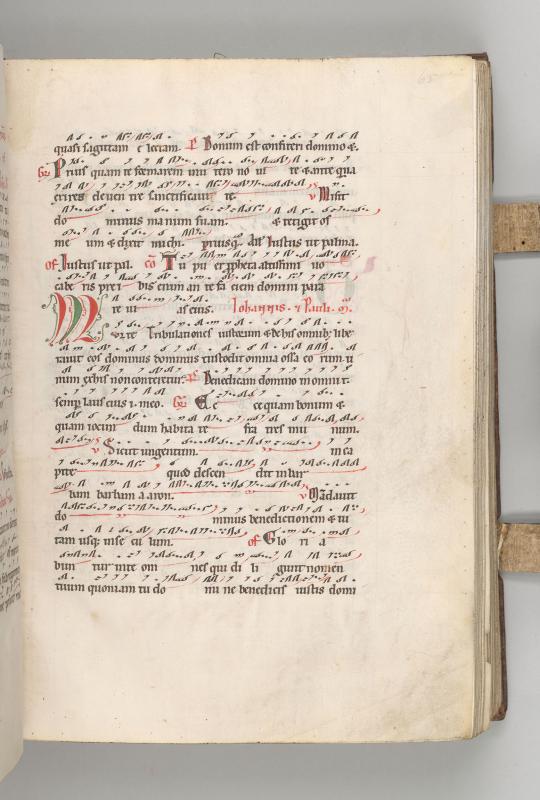 quasi sagittam electam. ps Bonum est confiteri domino &.
Gr Prius quam te formarem in u tero no ui te & ante qua
exires de uen tre sanctificaui te. v Misit
do minus ma num suam. & tetigit os
me um & dixit michi. priusq̄. All' Iustus ut palma.
of Iustus ut pal. cō Tu pu er ppheta altissimi uo
cabe ris prei bis enim an te fa ciem domini para
re ui as eius. Iohannis & Pauli m̄.
Multe tribulationes iustorum & de his omnib; libe
rauit eos dominus dominus custodit omnia ossa eo rum u
num ex his non conteretur. ps Benedicam domino in omni t.
semp laus eius i. meo. Gr Ec ce quam bonum &
quam iocun dum habita re fra tres in u num.
v Sicut ungentum. in ca
pite quod descen dit in bar
bam barbam aaron. v Mādauit
do minus benedictionem & ui
tam usq; in se cu lum. of Glo ri a
bun tur in te om nes qui di li gunt nomen
tuum quoniam tu do mi ne benedicis iustis domi